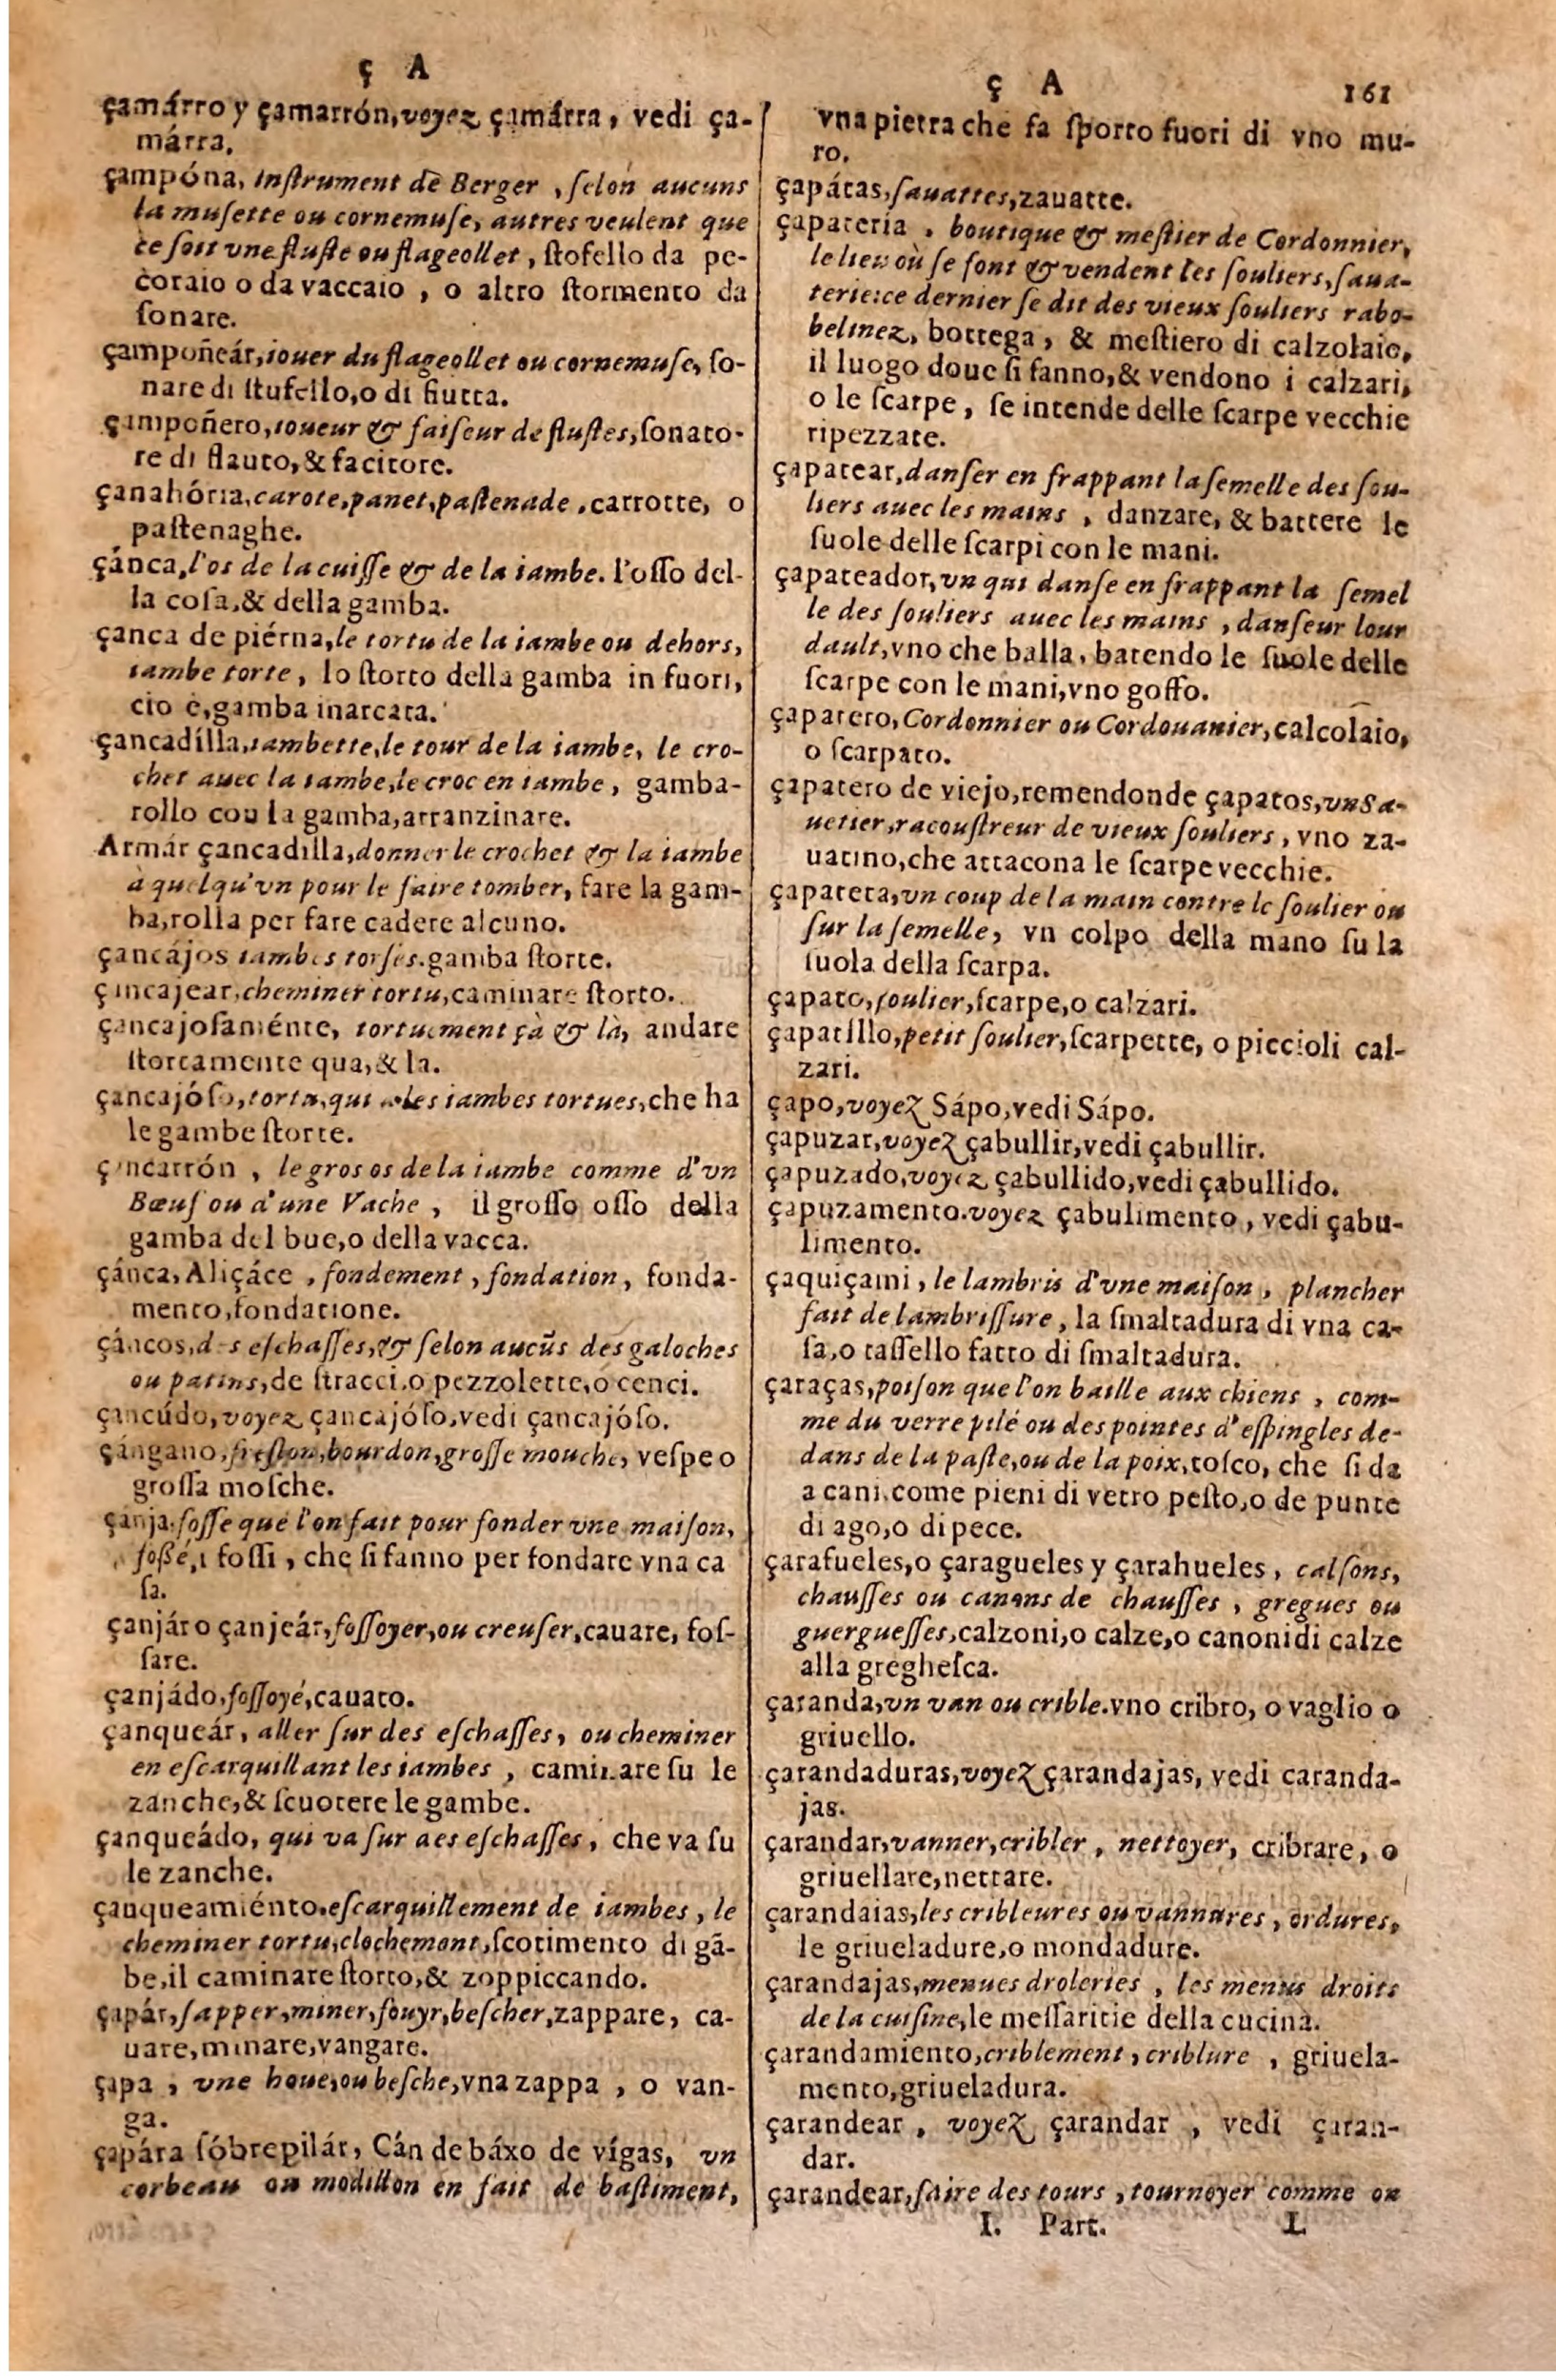 ç A
çamárro y çamarrón, voyez çamárra, vedi ça-
márra.
çampóna, instrument de Berger, selon aucuns
la musette ou cornemuse, autres veulent que
ce soit vne fluste ou flageollet, stofello da pe-
coraio o da vaccaio, o altro stormento da
sonare.
çampoñeár, iouer du flageollet ou cornemuse, so-
nare di stufello, o di fiutta.
çampoñero, ioueur & faiseur de flustes, sonato-
re di flauto, & facitore.
çanahória, carote, panet, pastenade, carrotte, o
pastenaghe.
çánca, l'os de la cuisse & de la iambe. l'osso del-
la cosa, & della gamba.
çanca de piérna, le tortu de la iambe ou dehors,
iambe torte, lo storto della gamba in fuori,
cio è, gamba inarcata.
çancadílla, iambette, le tour de la iambe, le cro-
chet auec la iambe, le croc en iambe, gamba-
rollo cou la gamba, arranzinare.
Armár çancadilla, donner le crochet & la iambe
à quelqu'vn pour le faire tomber, fare la gam-
ba, rolla per fare cadere alcuno.
çancájos iambes torses. gamba storte.
çancajear, cheminer tortu, caminare storto.
çancajosaménte, tortuement çà & là, andare
stortamente qua, & la.
çancajóso, tortu, qui a les iambes tortues, che ha
le gambe storte.
çancarrón, le gros os de la iambe comme d'vn
Bœuf ou d'une Vache, il grosso osso della
gamba del bue, o della vacca.
çánca, Aliçáce, fondement, fondation, fonda-
mento, fondatione.
çáncos, des eschasses, & selon aucũs des galoches
ou patins, de stracci, o pezzolette, o cenci.
çancúdo, voyez çancajóso, vedi çancajóso.
çángano, freslon, bourdon, grosse mouche, vespe o
grossa mosche.
çanja. fosse que l'on fait pour fonder vne maison,
foßé, i fossi, che si fanno per fondare vna ca
sa.
çanjár o çanjeár, fossoyer, ou creuser, cauare, fos-
sare.
çanjádo, fossoyé, cauato.
çanqueár, aller sur des eschasses, ou cheminer
en escarquillant les iambes, caminare su le
zanche, & scuotere le gambe.
çanqueádo, qui va sur des eschasses, che va su
le zanche.
çauqueamiénto. escarquillement de iambes, le
cheminer tortu, clochement, scotimento di gã-
be, il caminare storto, & zoppiccando.
çapár, sapper, miner, fouyr, bescher, zappare, ca-
uare, minare, vangare.
çapa, vne houe, ou besche, vna zappa, o van-
ga.
çapára sóbrepilár, Cán de báxo de vígas, vn
corbeau ou modillon en fait de bastiment,
ç A 161
vna pietra che fa sporto fuori di vno mu-
ro.
çapátas, sauattes, zauatte.
çapateria, boutique & mestier de Cordonnier,
le lieu où se font & vendent les souliers, saua-
terie: ce dernier se dit des vieux souliers rabo-
belinez, bottega, & mestiero di calzolaio,
il luogo doue si fanno, & vendono i calzari,
o le scarpe, se intende delle scarpe vecchie
ripezzate.
çapatear, danser en frappant la semelle des sou-
liers auec les mains, danzare, & battere le
suole delle scarpi con le mani.
çapateador, vn qui danse en frappant la semel
le des souliers auec les mains, danseur lour
dault, vno che balla, batendo le suole delle
scarpe con le mani, vno goffo.
çapatero, Cordonnier ou Cordouanier, calcolaio,
o scarpato.
çapatero de viejo, remendonde çapatos, vn Sa-
uetier, racoustreur de vieux souliers, vno za-
uatino, che attacona le scarpe vecchie.
çapateta, vn coup de la main contre le soulier ou
sur la semelle, vn colpo della mano su la
suola della scarpa.
çapato, soulier, scarpe, o calzari.
çapatíllo, petit soulier, scarpette, o piccioli cal-
zari.
çapo, voyez Sápo, vedi Sápo.
çapuzar, voyez çabullir, vedi çabullir.
çapuzado, voyez çabullido, vedi çabullido.
çapuzamento. voyez çabulimento, vedi çabu-
limento.
çaquiçami, le lambris d'vne maison, plancher
fait de lambrissure, la smaltadura di vna ca-
sa, o tassello fatto di smaltadura.
çaraças, poison que l'on baille aux chiens, com-
me du verre pilé ou des pointes d'espingles de-
dans de la paste, ou de la poix, tosco, che si da
a cani, come pieni di vetro pesto, o de punte
di ago, o di pece.
çarafueles, o çaragueles y çarahueles, calsons,
chausses ou canons de chausses, gregues ou
guerguesses, calzoni, o calze, o canoni di calze
alla greghesca.
çaranda, vn van ou crible. vno cribro, o vaglio o
griuello.
çarandaduras, voyez çarandajas, vedi caranda-
jas.
çarandar, vanner, cribler, nettoyer, cribrare, o
griuellare, nettare.
çarandaias, les cribleures ou vannures, ordures,
le griueladure, o mondadure.
çarandajas, menues droleries, les menus droits
de la cuisine, le messaritie della cucina.
çarandamiento, criblement, criblure, griuela-
mento, griueladura.
çarandear, voyez çarandar, vedi çaran-
dar.
çarandear, faire des tours, tournoyer comme on
I. Part. L